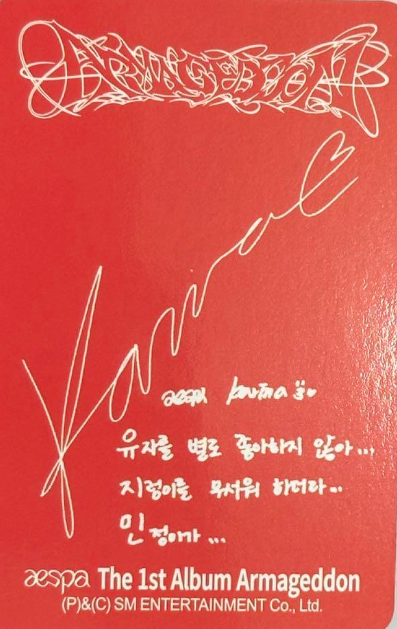 ARMAGEDDON
Karina
aespa Karina
유자를 별로 좋아하지 않아...
지렁이를 무서워 하더라...
민정이가...
aespa The 1st Album Armageddon
(P)&(C) SM ENTERTAINMENT Co., Ltd.